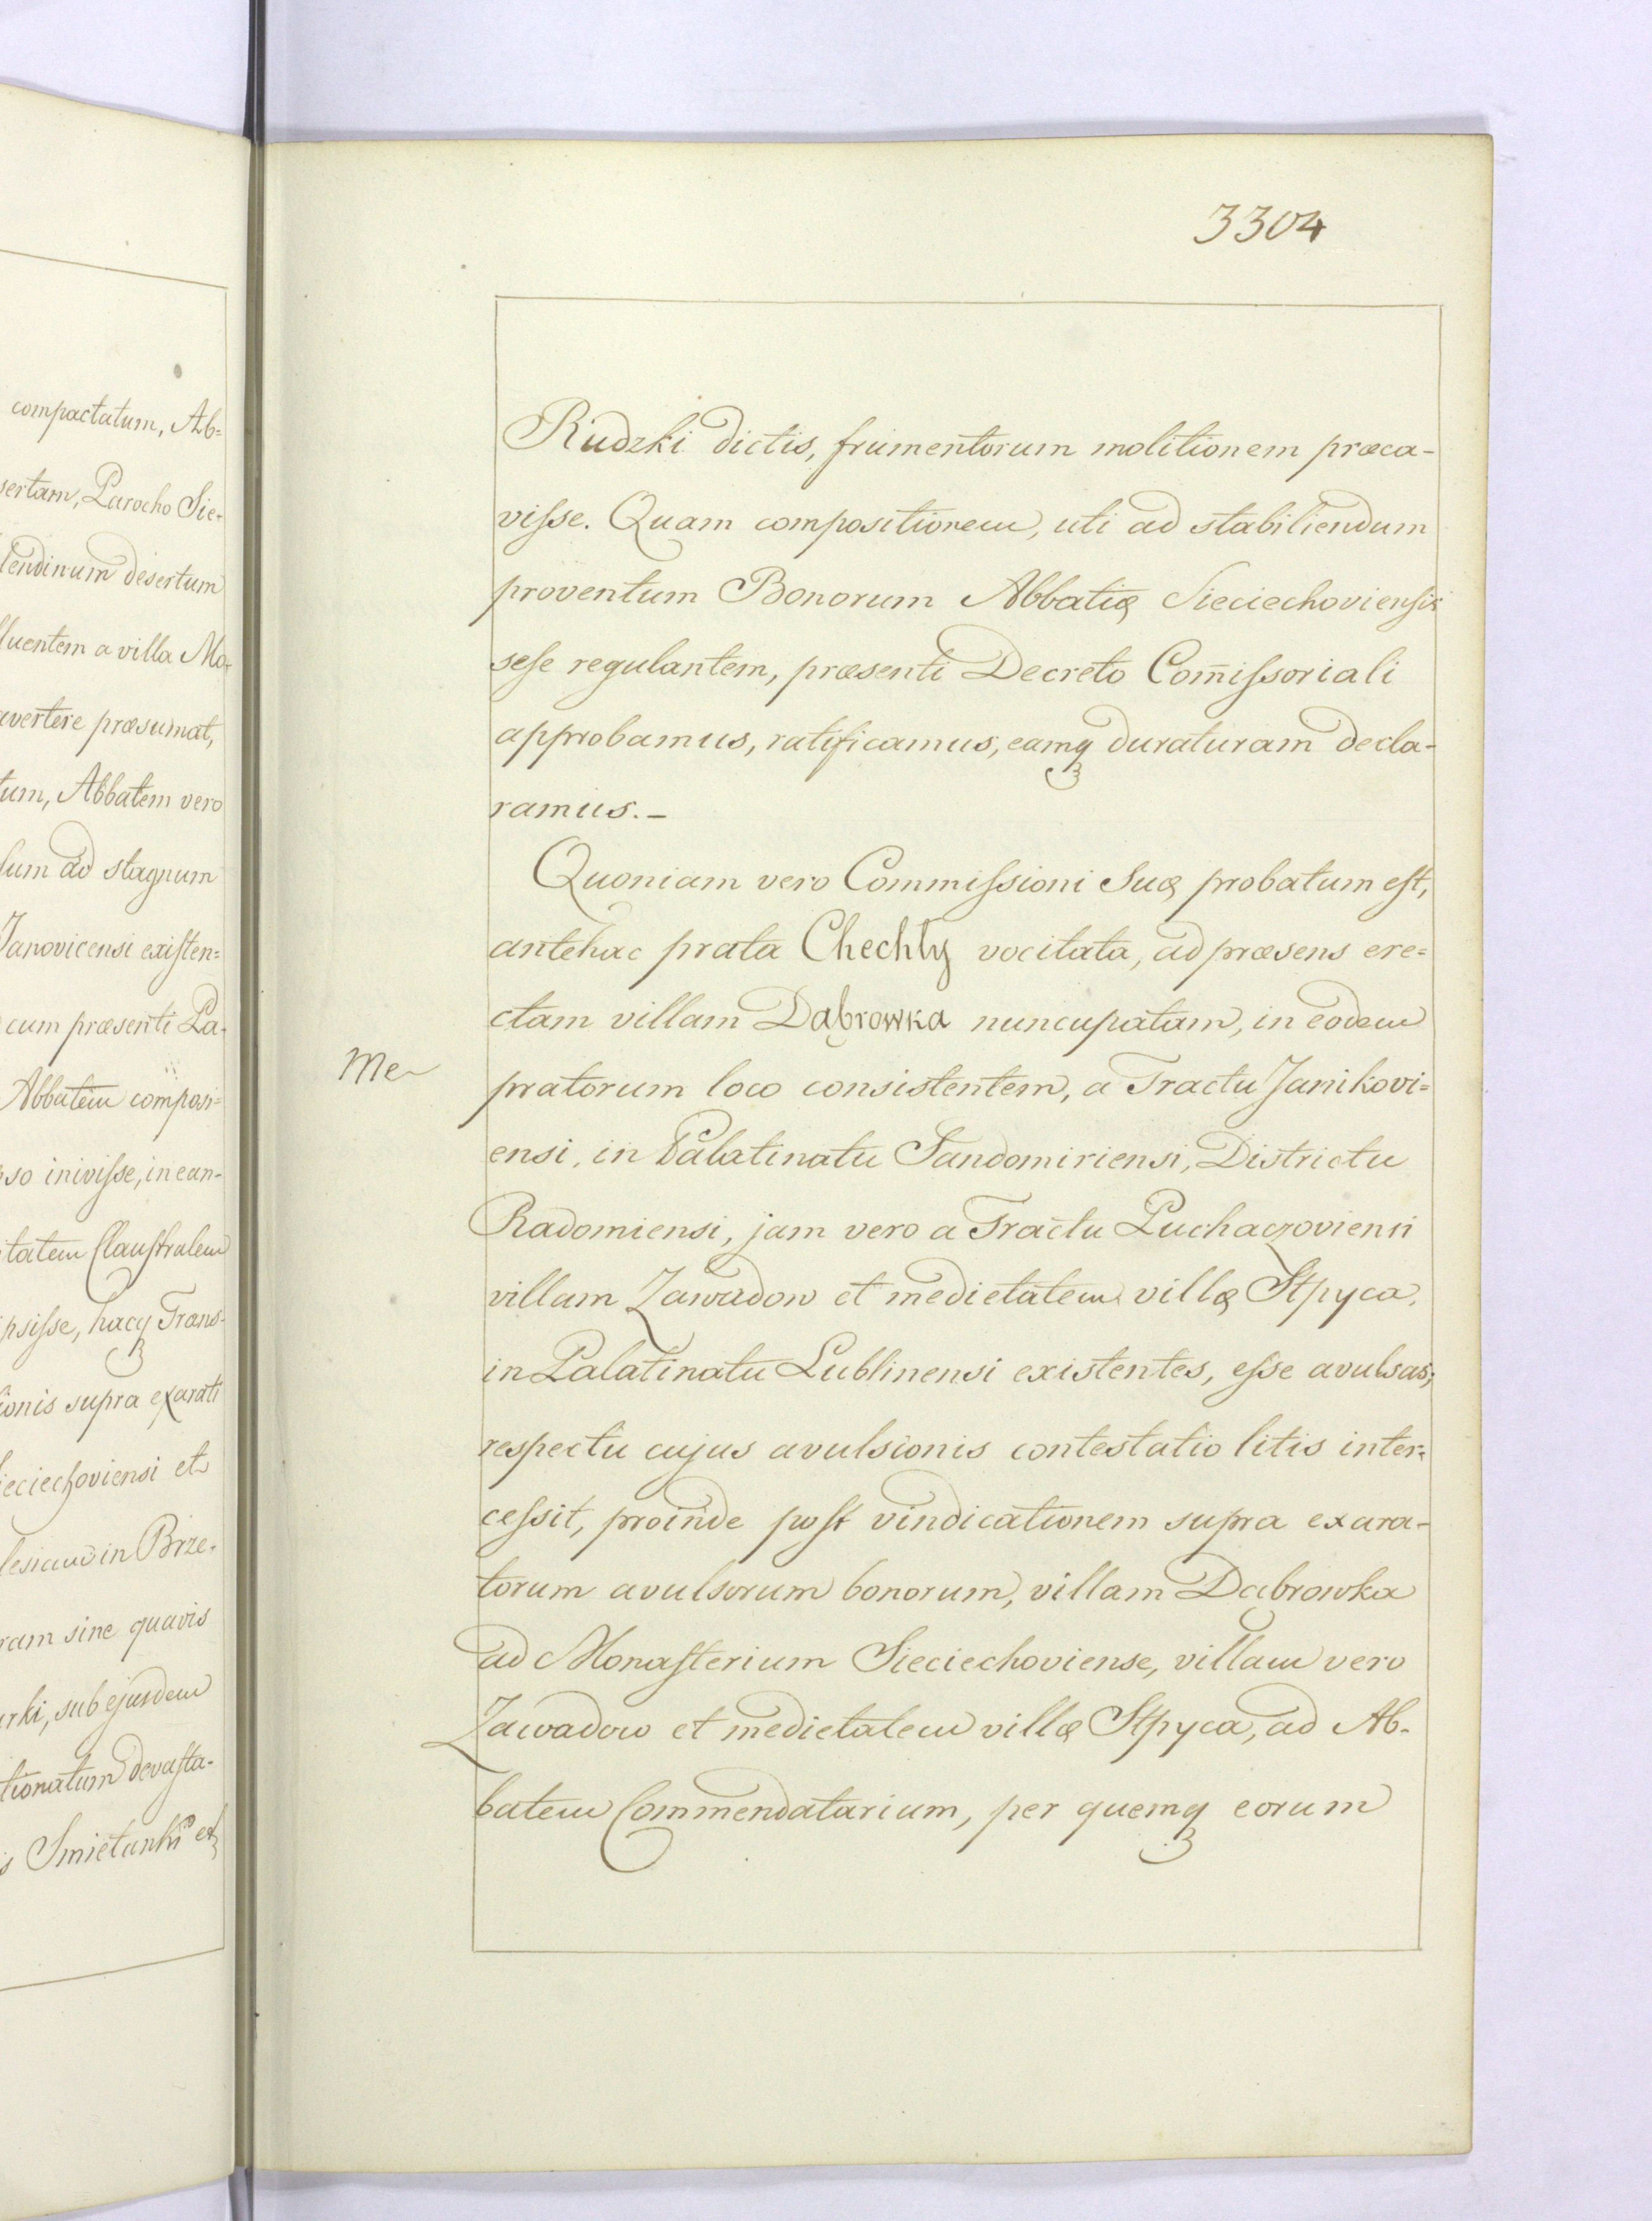 compactatum, Ab=
sertam, Parocho Sie-
lendinum desertum
fluentem a villa Mo-
avertere præsumat,
tum, Abbatem vero
sum ad stagnum
Janovicensi existen=
cum præsenti Pa-
Abbatem composi=
so inivisse, in ean-
tatem Claustralem
psisse, hacq3 Trans-
ionis supra exarati
ieciechoviensi et
lesiam in Brze-
ram sine quavis
rki, sub ejusdem
tionatum devasta-
s Smietanki et
3304
Rudzki dictis, frumentorum molitionem præca-
visse. Quam compositionem, uti ad stabiliendum
proventum Bonorum Abbatię Sieciechoviensis
sese regulantem, præsenti Decreto Com̄issoriali
approbamus, ratificamus, eamq3 duraturam decla-
ramus.-
Quoniam vero Commissioni Suę probatum est,
antehac prata Chechły vocitata, ad præsens ere=
ctam villam Dąbrowka nuncupatam, in eodem
Me
pratorum loco consistentem, a Tractu Janikovi=
ensi, in Palatinatu Sandomiriensi, Districtu
Radomiensi, jam vero a Tractu Puchaczoviensi
villam Zawadow et medietatem villę Stpyca,
in Palatinatu Lublinensi existentes, esse avulsas;
respectu cujus avulsionis contestatio litis inter=
cessit, proinde post vindicationem supra exara-
torum avulsorum bonorum, villam Dąbrowka
ad Monasterium Sieciechoviense, villam vero
Zawadow et medietatem villę Stpyca, ad Ab-
batem Commendatarium, per quemq3 eorum